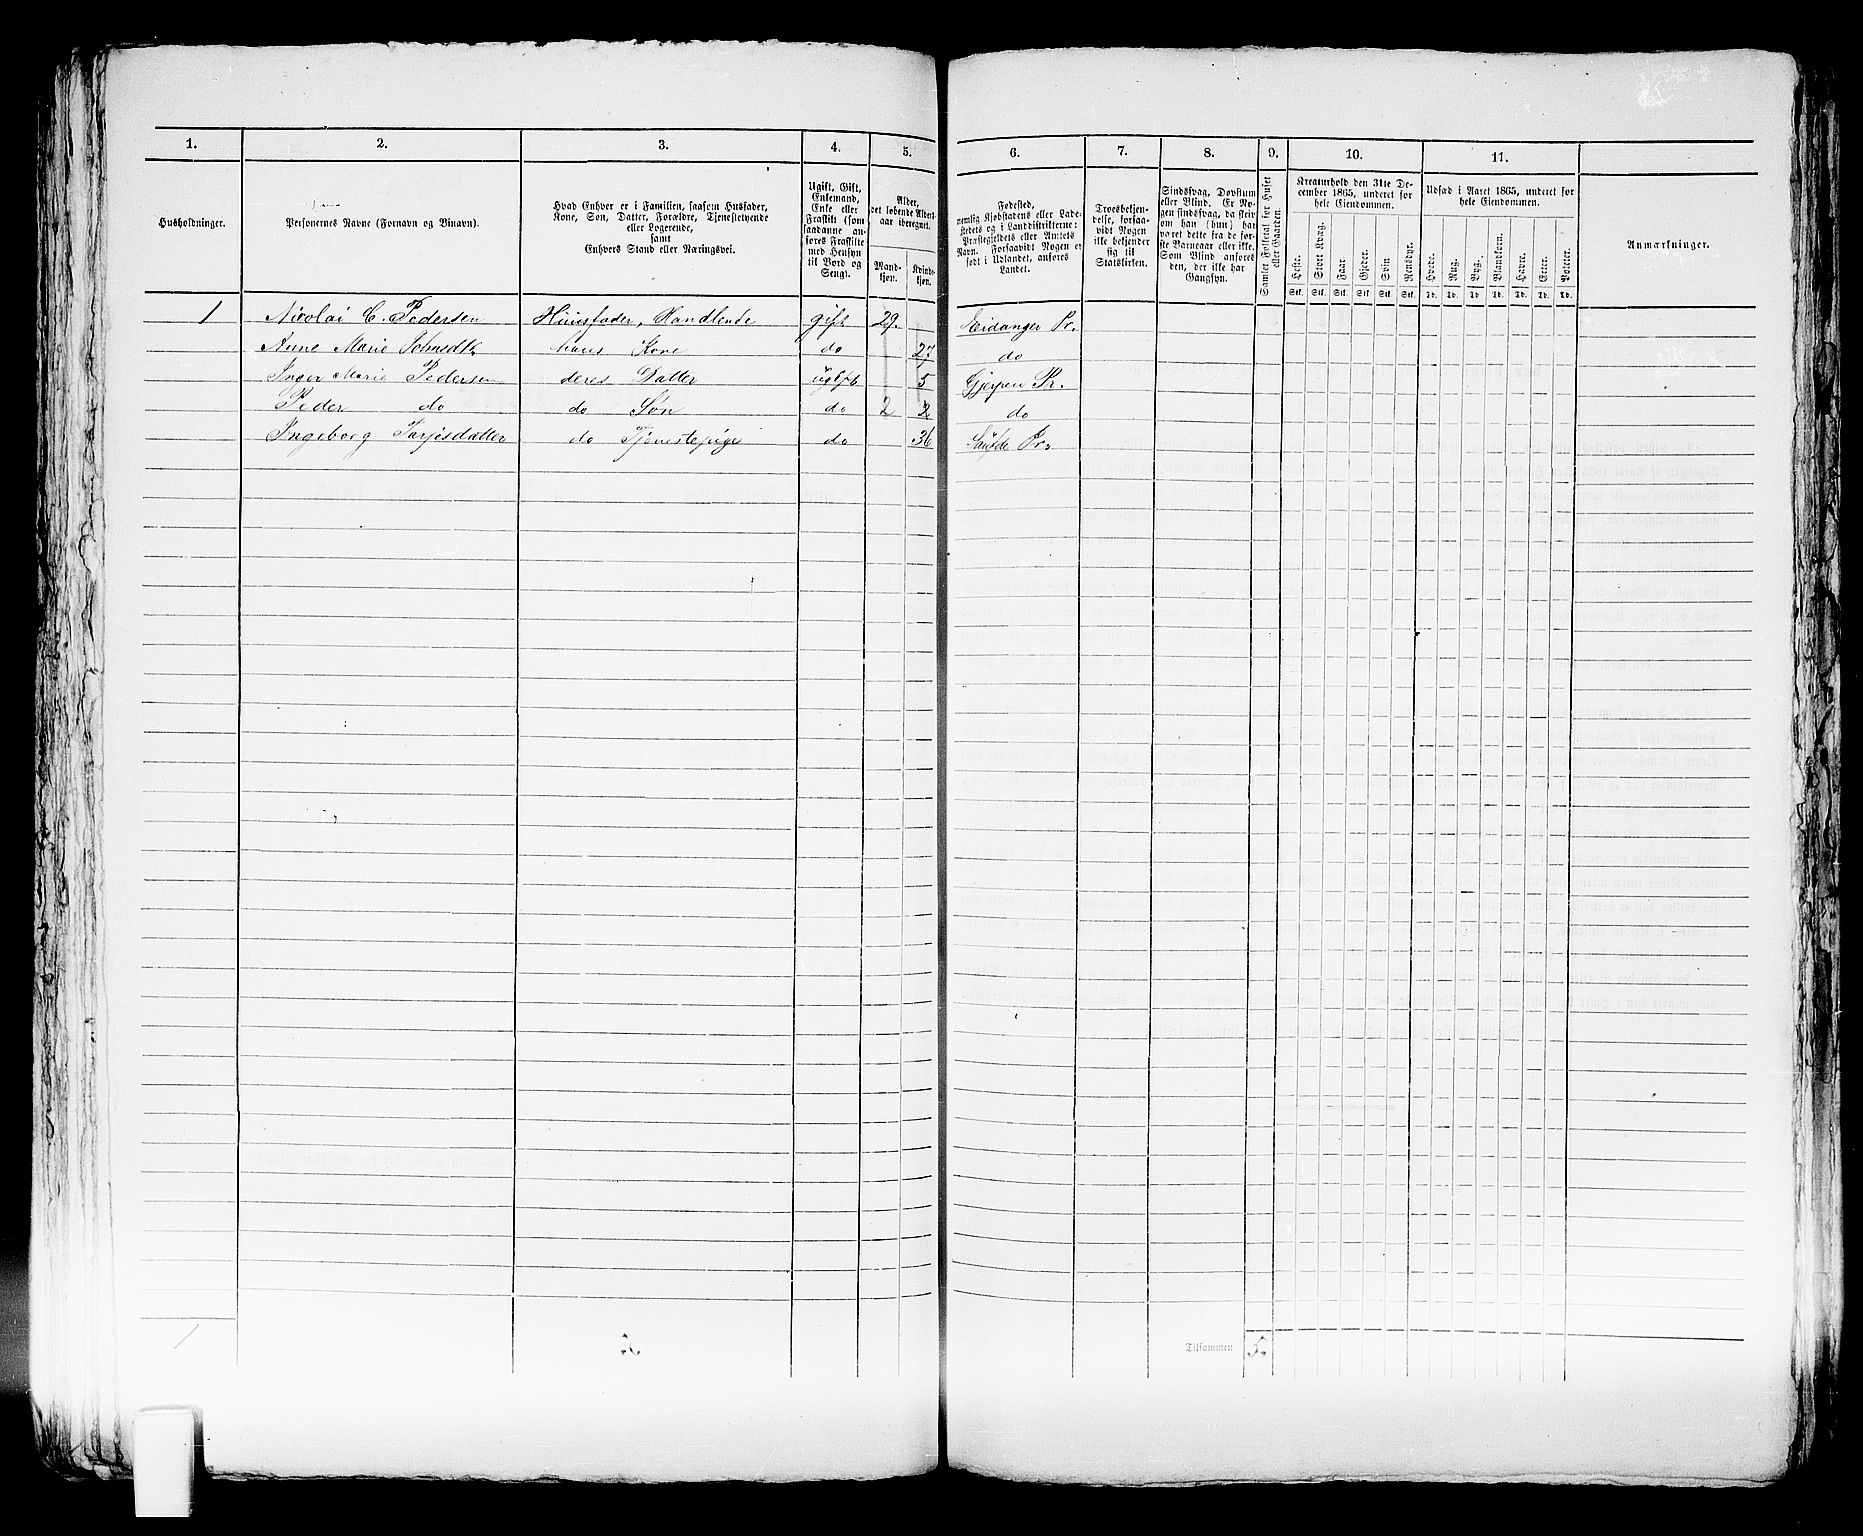 1. 2. 3. 4. 5. 6. 7. 8. 9. 10. 11.
Husholdninger.
Personernes Navne (Fornavn og Binavn).
Hvad Enhver er i Familien, saasom Husfader,
Kone, Søn, Datter, Forældre, Tjenestetyende
eller Logerende,
samt
Enhvers Stand eller Næringsvei.
Ugift, Gift,
Enkemand,
Enke eller
Fraskilt (som
saadanne an-
føres Fraskilte
med Hensyn
til Bord og
Seng).
Alder,
det løbende Alders-
aar iberegnet.
Mand-
kjøn.
Kvinde-
kjøn.
Fødested,
nemlig Kjøbstadens eller Lade-
stedets og i Landdistrikterne:
Præstegjeldets eller Amtets
Navn. Forsaavidt Nogen er
født i Udlandet, anføres
Landet.
Troesbekjen-
delse, forsaa-
vidt Nogen
ikke bekjender
sig til
Statskirken.
Sindssvag, Døvstum
eller Blind. Er No-
gen sindssvag, da skriv
om han (hun) har
været dette fra de før-
ste Barneaar eller ikke.
Som Blind anføres
den, der ikke har
Gangsyn.
Samlet Folketal for Huset
eller Gaarden.
Kreaturhold den 31te De-
cember 1865, underet for
hele Eiendommen.
Heste. Stort Kvæg. Faar Gjeder. Svin Rensdyr.
Stk. Stk. Stk. Stk. Stk. Stk.
Udsæd i Aaret 1865, underet for
hele Eiendommen.
Hvede. Rug. Byg. Blandkorn. Havre. Erter. Poteter.
Td. Td. Td. Td. Td. Td. Td.
Anmærkninger.
1 Nicolai C. Pedersen Huusfader, Handlende gift 29. Eidanger Pr.
Anne Marie hans Kone do 27 do
Inger Marie Pedersen deres Datter ugift 5 Gjerpen Pr.
Peder do do Søn do 2 2 do
Ingeborg Tarjesdatter do Tjenestepige do 36 Saude Pr.
1 5. Tilsammen 5.